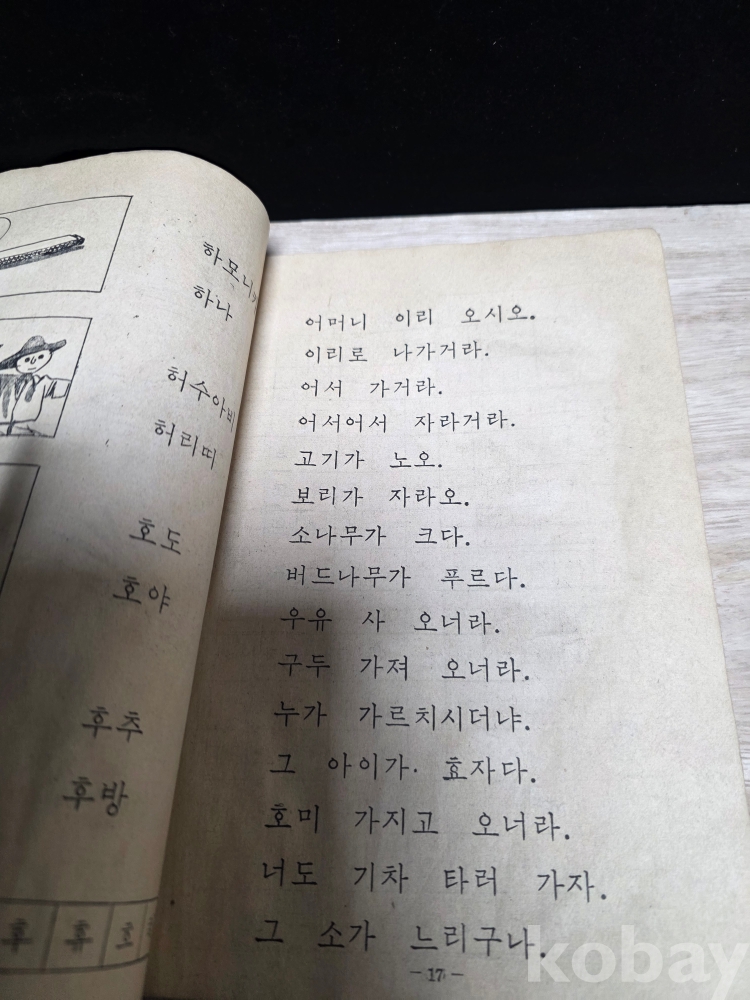 하모니카
하나
허수아비
허리띠
호도
호야
후추
후방
휴
호
어머니 이리 오시오.
이리로 나가거라.
어서 가거라.
어서어서 자라거라.
고기가 노오.
보리가 자라오.
소나무가 크다.
버드나무가 푸르다.
우유 사 오너라.
구두 가져 오너라.
누가 가르치시더냐.
그 아이가 효자다.
호미 가지고 오너라.
너도 기차 타러 가자.
그 소가 느리구나.
-17-
kobay